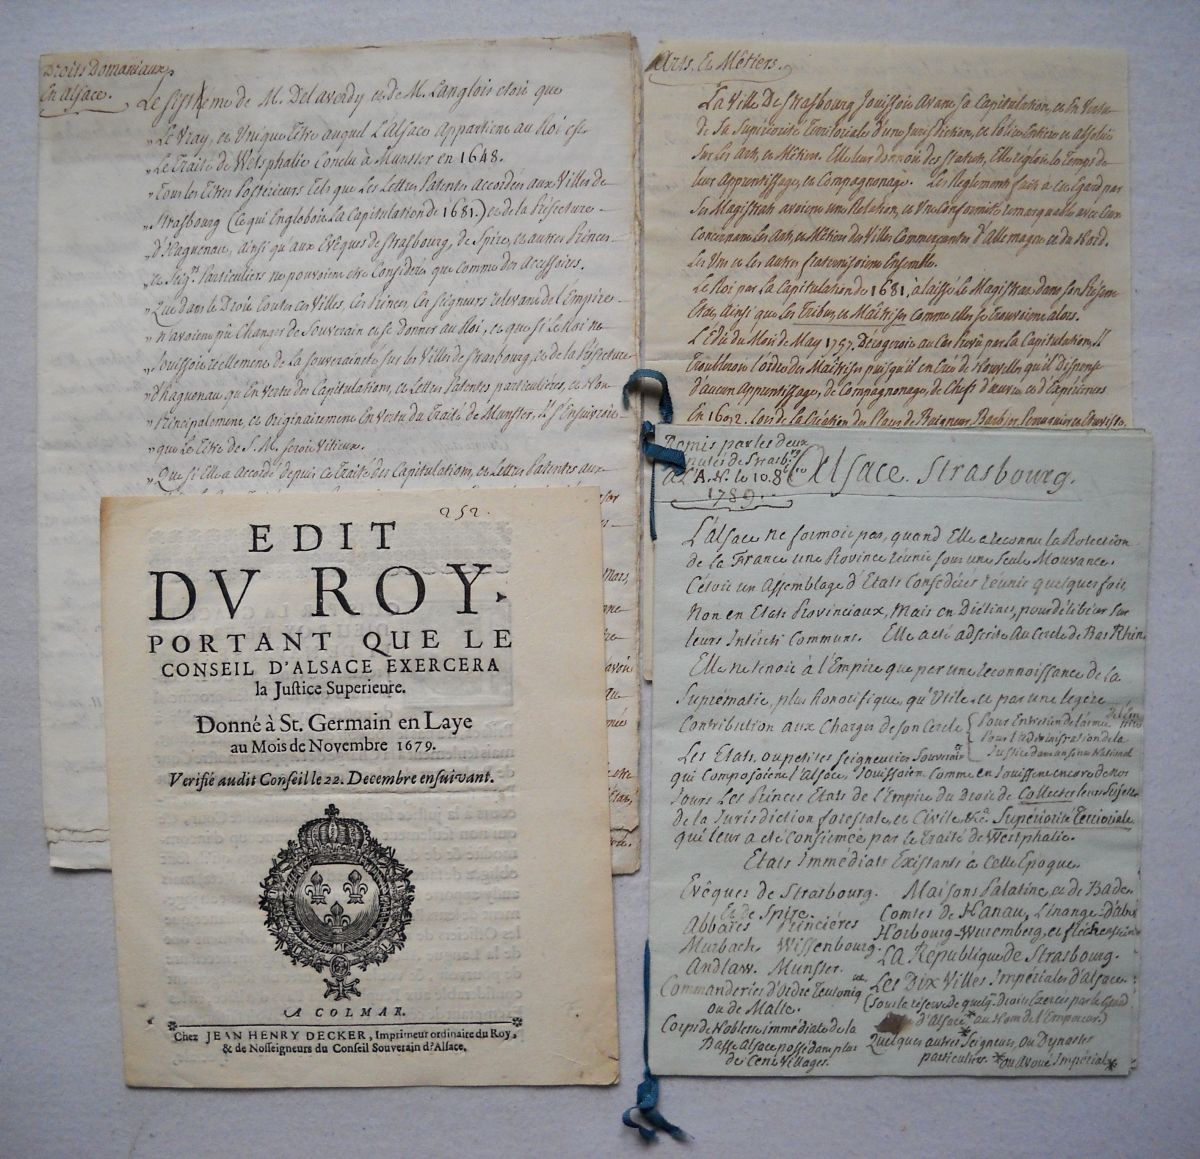 Droits Domaniaux
En alsace.
Le sistéme de M. Delaverdy et de M. Langlois etoit que
„ Le Vray, et Unique Titre auquel L'alsace Appartient au Roi est
„ Le Traité de Wetsphalie Conclu à Munster en 1648.
„ Tous les titres Postérieurs tels que Les Lettres Patentes accordées aux Villes de
„ Strasbourg (Ce qui Englobe La Capitulation de 1681.) et de la Préfecture
„ D'Haguenau, ainsi qu'aux Evêques de Strasbourg, de Spire, et autres Princes
Particuliers ne pouvoient etre Considérés que comme des Accessoires.
„ Que dans le Droit toutes ces Villes, ces Princes, ces Seigneurs relevant de l'Empire
„ n'avoient pû Changer de Souverain et se donner au Roi, et que si le Roi ne
„ Jouissoit réellement de la Souveraineté sur les Villes de Strasbourg, et de la Préfecture
„ d'Haguenau qu'En Vertu des Capitulations, et Lettres Patentes particulieres, et Non
„ Principalement et Originairement En vertu du Traité de Munster, Il s'Ensuivroit
„ que Le titre de S. M. seroit Vitieux.
„ Que si Elle a Accordé depuis ce Traité des Capitulations, et Lettres Patentes aux
Arts et Métiers.
La Ville De Strasbourg Jouissoit Avant sa Capitulation, et En Vertu
de sa Supériorité Territoriale d'une Jurisdiction, et Police Entiere et absolue
sur les Arts et Métiers. Elle leur donnoit des Statuts, Elle régloit le Temps de
leur Apprentissage, et Compagnonage. Les Reglements faits à cet Egard par
Ses Magistrats avoient une Relation, et Une Conformité remarquable avec Ceux
Concernant les Arts et Métiers des Villes Commerçantes d'Allemagne et du Nord.
Les Uns et les autres fraternisoient Ensemble.
Le Roi par La Capitulation de 1681, a laissé Le Magistrat dans son Présent
Etat, Ainsi que les Tribus et Maîtrises Comme elles se trouvoient alors.
L'Edit du Mois de May 1757. Dérogeroit au Cas Prévu par la Capitulation, Il
Troubleroit l'ordre des Maîtrises puisqu'il en Crée de Nouvelles qu'il Dispense
d'aucun Apprentissage, de Compagnonage, de Chefs d'œuvre et d'Expériences.
En 1692. Lors de la Création des
Remis par les deux
de Strasb.rg
à L'A. N. le 10. 8bre
1789.
Alsace. Strasbourg.
L'alsace ne formoit pas, quand Elle a reconnu la Protection
de la France une Province réunie sous une Seule Mouvance.
C'étoit un Assemblage d'Etats Confédérés réunis quelquefois,
Non en Etats Provinciaux, Mais en Diétines, pour délibérer sur
leurs Intérêts Communs. Elle a été adscrite Au Cercle du Bas Rhin.
Elle ne tenoit à l'Empire que par une reconnoissance de la
Suprématie, plus honorifique, qu'Utile et par une legére
Contribution aux Charges de son Cercle { Pour Entretien de l'armée de l'Empire
Pour l'Administration de la
Justice dans un sens National
Les Etats, ou petites Seigneuries Souverain.es
qui Composoient l'alsace, Jouissoient Comme en Jouissent encore de nos
Jours Les Princes Etats de l'Empire du Droit de Collecter leurs Sujets
de la Jurisdiction forestale et Civile &c.a Supériorité Territoriale
qui leur a été Confirmée par le Traité de Westphalie.
Etats Immédiats Existants à Celle Epoque
Evêques de Strasbourg.
Et de Spire
Abbaïes Princiéres
Murbach Wissenbourg
Andlaw. Munster.
Commanderies d'Ordre Teutoniq.ue
ou de Malte.
Corps de Noblesse immédiate de la
Basse Alsace possedant plus
de Cent Villages.
Maisons Palatine, et de Bade
Comtes de Hanau, Linange-D'abo
Horbourg-Wurtemberg, et fleckenstein
La République de Strasbourg.
Les Dix Villes Impériales d'Alsace.
(Sous le réserve de quelq. Droits Exercés par le Grand
d'Alsace * au Nom de l'Empereur)
Quelques autres Seigneurs, ou Dynastes
particuliers. * ou avoué Impérial *
252.
EDIT
DV ROY
PORTANT QUE LE
CONSEIL D'ALSACE EXERCERA
la Justice Superieure.
Donné à St. Germain en Laye
au Mois de Novembre 1679.
Verifié audit Conseil le 22. Decembre ensuivant.
A COLMAR.
Chez JEAN HENRY DECKER, Imprimeur ordinaire du Roy,
& de Nosseigneurs du Conseil Souverain d'Alsace.